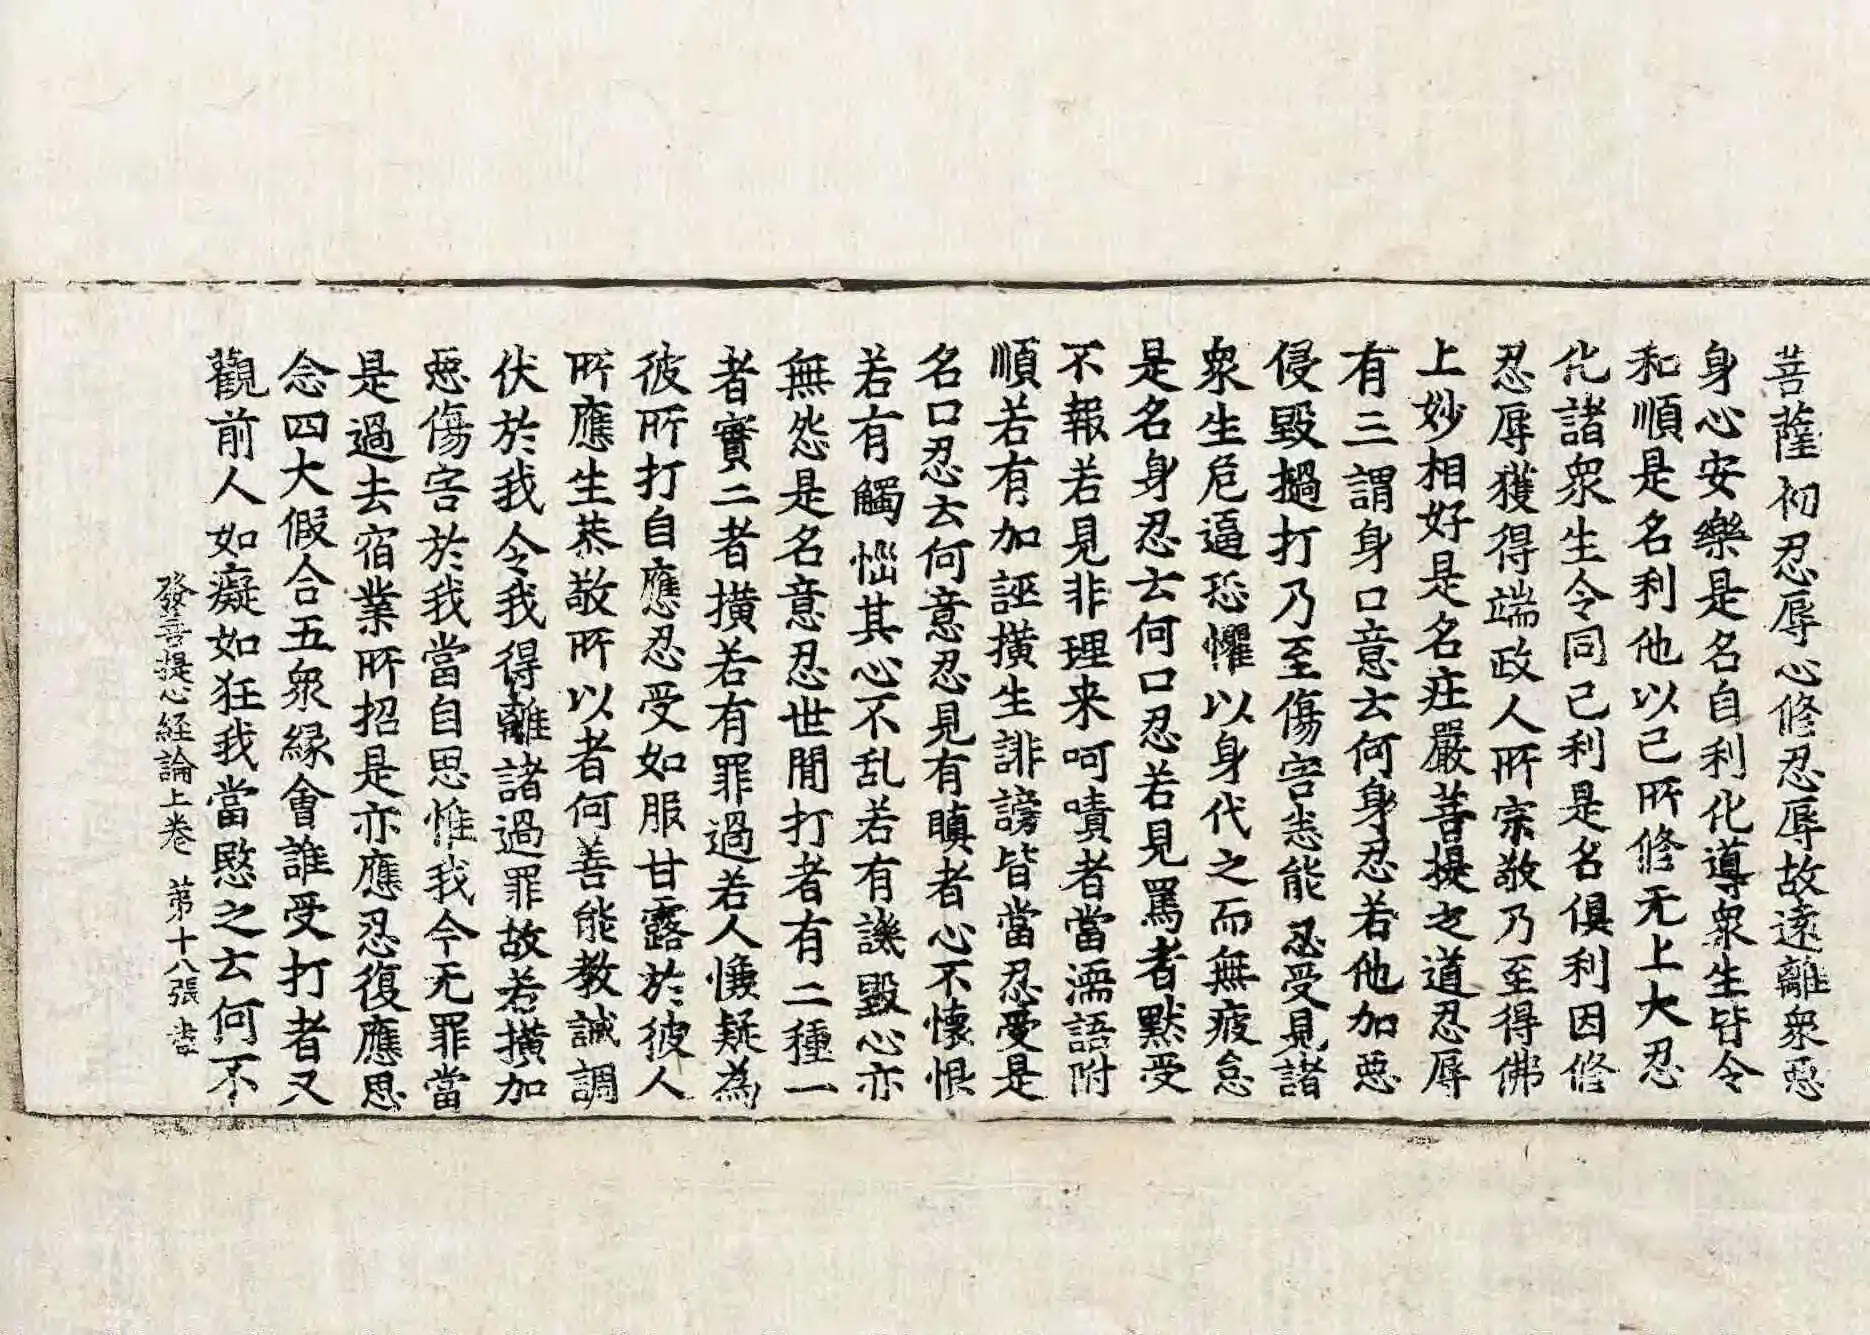 菩薩初忍辱心修忍辱故遠離衆惡
身心安樂是名自利化導衆生皆令
和順是名利他以己所修无上大忍
化諸衆生令同己利是名俱利因修
忍辱獲得端政人所宗敬乃至得佛
上妙相好是名庄嚴菩提之道忍辱
有三謂身口意云何身忍若他加惡
侵毀撾打乃至傷害悉能忍受見諸
衆生危逼恐懼以身代之而無疲怠
是名身忍云何口忍若見罵者默受
不報若見非理来呵嘖者當濡語附
順若有加誣撗生誹謗皆當忍受是
名口忍云何意忍見有瞋者心不懷恨
若有觸惱其心不乱若有譏毀心亦
無怨是名意忍世間打者有二種一
者實二者撗若有罪過若人慊疑為
彼所打自應忍受如服甘露於彼人
所應生恭敬所以者何善能教誡調
伏於我令我得離諸過罪故若撗加
惡傷害於我當自思惟我今无罪當
是過去宿業所招是亦應忍復應思
念四大假合五衆緣會誰受打者又
觀前人如癡如狂我當愍之云何不
發菩提心經論上卷 第十八張 書